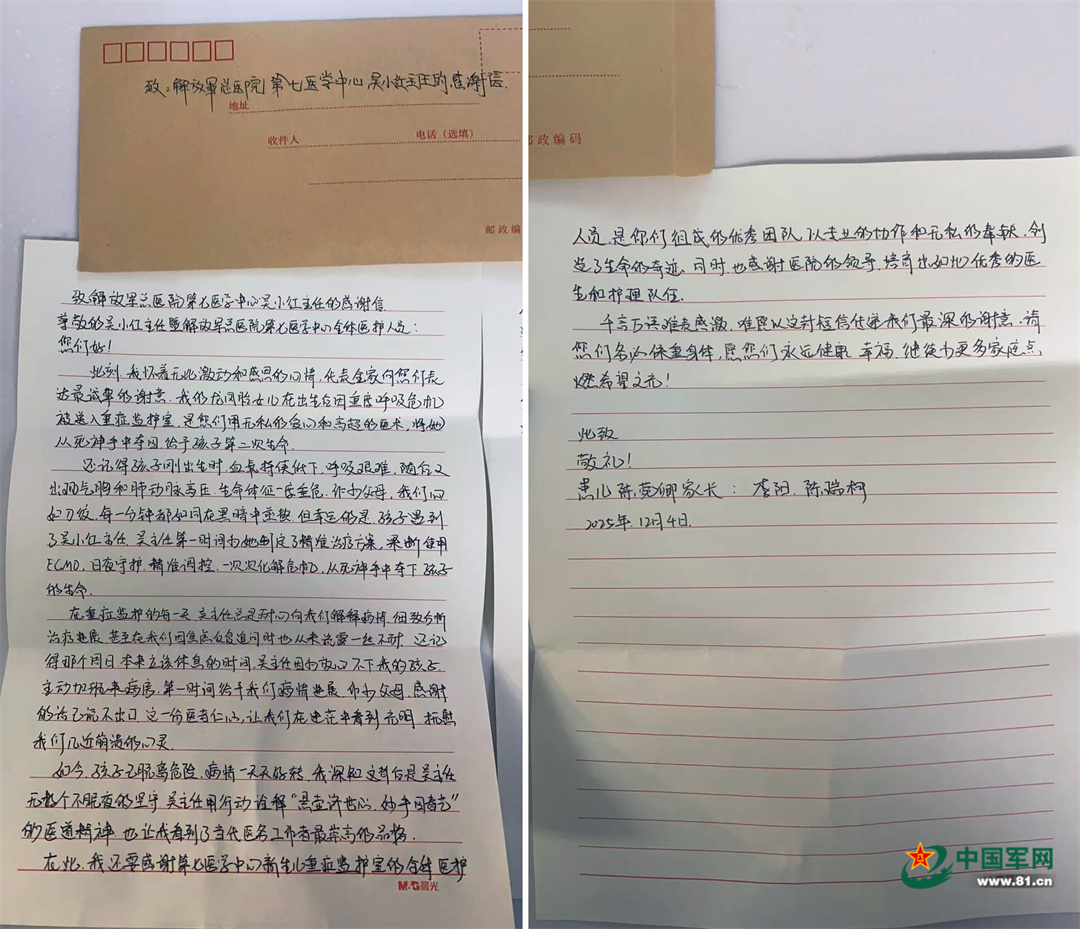 致:解放军总医院第七医学中心吴小红主任的感谢信.
地址
收件人
电话(选填)
邮政编
致解放军总医院第七医学中心吴小红主任的感谢信
尊敬的吴小红主任暨解放军总医院第七医学中心全体医护人员:
您们好!
此刻,我怀着无比激动和感恩的心情,代表全家向您们表
达最诚挚的谢意.我的龙凤胎女儿在出生后因重度呼吸危机
被送入重症监护室,是您们用无私的爱心和高超的医术,将她
从死神手中夺回,给予孩子第二次生命.
还记得孩子刚出生时,血氧持续低下,呼吸艰难,随后又
出现气胸和肺动脉高压,生命体征一度垂危.作为父母,我们心
如刀绞,每一分钟都如同在黑暗中煎熬.但幸运的是,孩子遇到
了吴小红主任.吴主任第一时间为她制定了精准治疗方案,果断使用
ECMO,日夜守护,精准调控,一次次化解危机,从死神手中夺下孩子
的生命.
在重症监护的每一天,吴主任总是耐心向我们解释病情,细致分析
治疗进展,甚至在我们因焦虑反复追问时也从未流露一丝不耐.还记
得那个周日本来应该休息的时间,吴主任因为放心不下我的孩子,
主动加班来病房,第一时间给予我们病情进展.作为父母,感谢
的话已说不出口,这一份医者仁心,让我们在迷茫中看到光明,抚慰
我们几近崩溃的心灵.
如今,孩子已脱离危险,病情一天天好转.我深知这背后是吴主任
无数个不眠夜的坚守.吴主任用行动诠释"悬壶济世心,妙手回春艺"
的医道精神,也让我看到了当代医务工作者最崇高的品格.
在此,我还要感谢第七医学中心新生儿重症监护室的全体医护
M&G晨光
邮政编码
人员.是你们组成的优秀团队,以专业的协作和无私的奉献,创
造了生命的奇迹.同时,也感谢医院的领导,培育出如此优秀的医
生和护理队伍.
千言万语难表感激,难愿以这封短信传递我们最深的谢意.请
您们务必保重身体,愿您们永远健康、幸福,继续为更多家庭点
燃希望之光!
此致
敬礼!
患儿陈奕卿家长:李阳、陈瑞柯
2025年.12月4日.
中国军网
www.81.cn